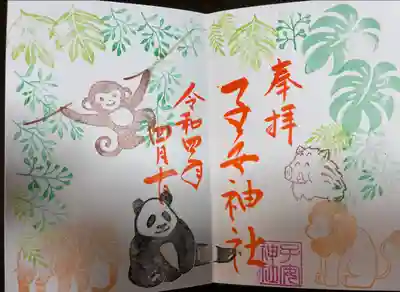 奉拝
子安神社
令和四年
四月十
子安
神社